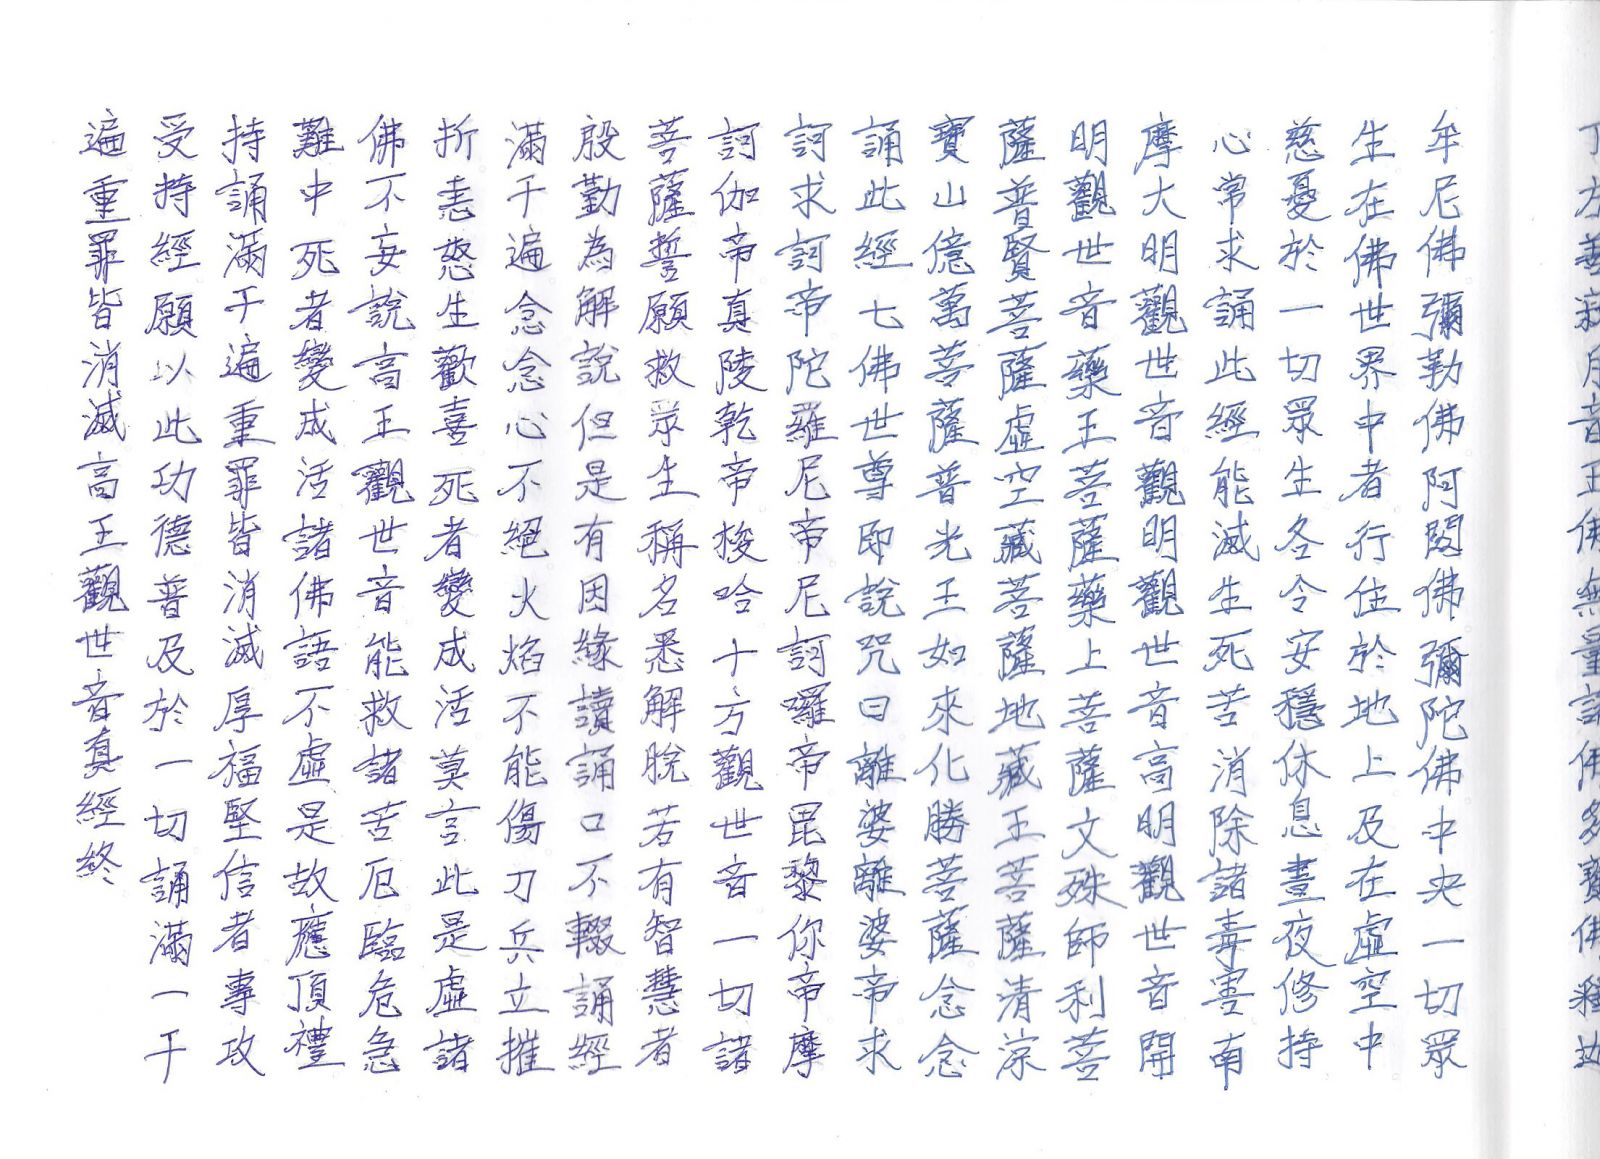 下方善寂月音王佛無量諸佛多寶佛釋迦
牟尼佛彌勒佛阿閦佛彌陀佛中央一切眾
生在佛世界中者行住於地上及在虛空中
慈憂於一切眾生各令安穩休息晝夜修持
心常求誦此經能滅生死苦消除諸毒害南
摩大明觀世音觀明觀世音高明觀世音開
明觀世音藥王菩薩藥上菩薩文殊師利菩
薩普賢菩薩虛空藏菩薩地藏王菩薩清涼
寶山億萬菩薩普光王如來化勝菩薩念念
誦此經七佛世尊即說咒曰離婆離婆帝求
訶求訶帝陀羅尼帝尼訶囉帝毘黎你帝摩
訶伽帝真陵乾帝梭哈十方觀世音一切諸
菩薩誓願救眾生稱名悉解脫若有智慧者
殷勤為解說但是有因緣讀誦口不輟誦經
滿千遍念念心不絕火焰不能傷刀兵立摧
折恚怒生歡喜死者變成活莫言此是虛諸
佛不妄說高王觀世音能救諸苦厄臨危急
難中死者變成活諸佛語不虛是故應頂禮
持誦滿千遍重罪皆消滅厚福堅信者專攻
受持經願以此功德普及於一切誦滿一千
遍重罪皆消滅高王觀世音真經終